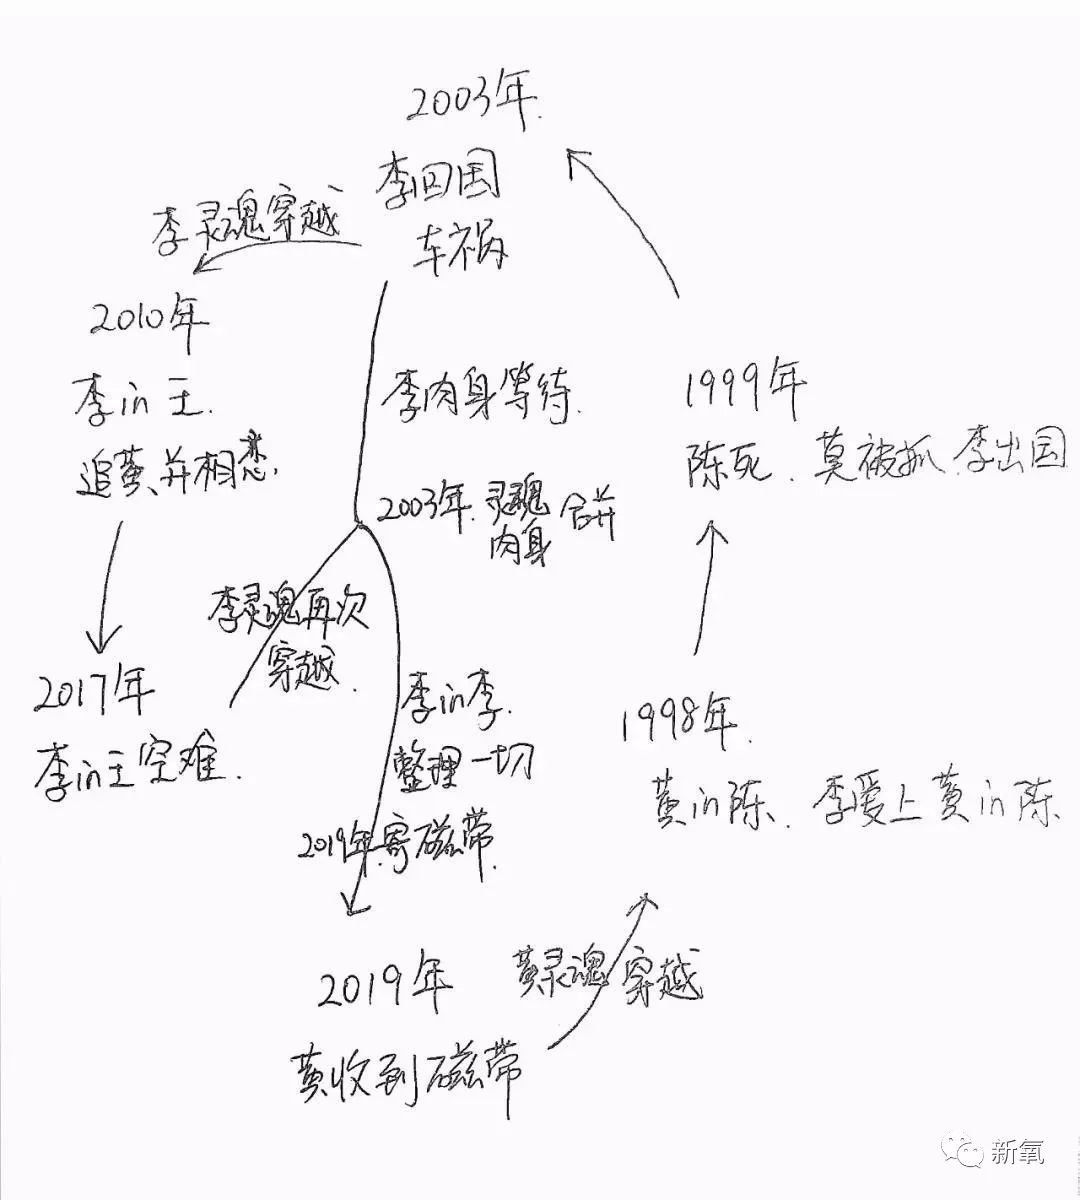 2003年.
李回国
车祸
李灵魂穿越
2010年
李in王.
追黄,并相恋.
李肉身等待.
2003年.灵魂肉身合并
1999年
陈死.莫被抓.李出国
李灵魂再次
穿越.
2017年
李in王空难.
李in李.
整理一切
2019年寄磁带.
1998年.
黄in陈.李爱上黄in陈
2019年
黄收到磁带
黄灵魂穿越
新氧